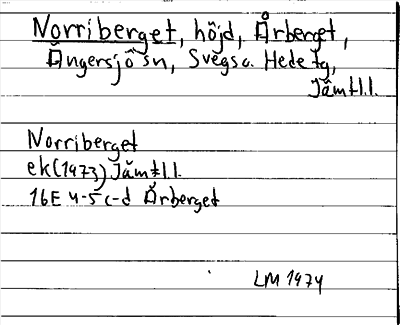 Norriberget, höjd, Årberget,
Ängersjö sn, Svegs o. Hede tg,
Jämtl.l.
Norriberget
ek (1973) Jämtl.l.
16E 4-5 c-d Årberget
LM 1974